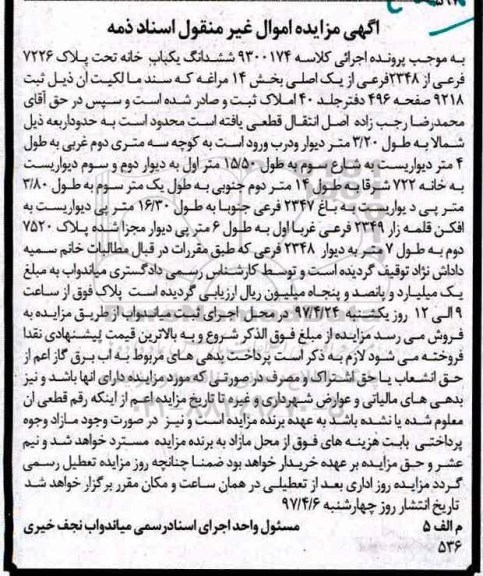 آگهی مزایده اموال غیر منقول اسناد ذمه
به موجب پرونده اجرائی کلاسه ۹۳۰۰۱۷۴ ششدانگ یکباب خانه تحت پلاک ۷۲۲۶
فرعی از ۲۳۴۸فرعی از یک اصلی بخش ۱۴ مراغه که سند مالکیت آن ذیل ثبت
۹۲۱۸ صفحه ۴۹۶ دفترجلد ۴۰ املاک ثبت و صادر شده است و سپس در حق آقای
محمدرضا رجب زاده اصل انتقال قطعی یافته است محدود است به حدوداربعه ذیل
شمالا به طول ۳/۲۰ متر دیوار ودرب ورود است به کوچه سه متری دوم غربی به طول
۴ متر دیواریست به شارع سوم به طول ۱۵/۵۰ متر اول به دیوار دوم و سوم دیواریست
به خانه ۷۲۲ شرقا به طول ۱۴ متر دوم جنوبی به طول یک متر سوم به طول ۳/۸۰
متر پی دیواریست به باغ ۲۳۴۷ فرعی جنوبا به طول ۱۶/۳۰ متر پی دیواریست به
افکن قلمه زار ۲۳۴۹ فرعی غربا اول به طول ۶ متر پی دیوار مجزا شده پلاک ۷۵۲۰
دوم به طول ۷ متر به دیوار ۲۳۴۸ فرعی که طبق مقررات در قبال مطالبات خانم سمیه
داداش نژاد توقیف گردیده است و توسط کارشناس رسمی دادگستری میاندواب به مبلغ
یک میلیارد و پانصد و پنجاه میلیون ریال ارزیابی گردیده است پلاک فوق از ساعت
۹ الی ۱۲ روز یکشنبه ۹۷/۴/۲۴ در محل اجرای ثبت میاندواب از طریق مزایده به
فروش می رسد مزایده از مبلغ فوق الذکر شروع و به بالاترین قیمت پیشنهادی نقدا
فروخته می شود لازم به ذکر است پرداخت بدهی های مربوط به آب برق گاز اعم از
حق انشعاب یا حق اشتراک و مصرف در صورتی که مورد مزایده دارای آنها باشد و نیز
بدهی های مالیاتی و عوارض شهرداری و غیره تا تاریخ مزایده اعم از اینکه رقم قطعی آن
معلوم شده یا نشده باشد به عهده برنده مزایده است و نیز در صورت وجود مازاد وجوه
پرداختی بابت هزینه های فوق از محل مازاد به برنده مزایده مسترد خواهد شد و نیم
عشر و حق مزایده بر عهده خریدار خواهد بود ضمنا چنانچه روز مزایده تعطیل رسمی
گردد مزایده روز اداری بعد از تعطیلی در همان ساعت و مکان مقرر برگزار خواهد شد
تاریخ انتشار روز چهارشنبه ۹۷/۴/۶
م الف ۵ مسئول واحد اجرای اسناد رسمی میاندواب نجف خیری
۵۳۶